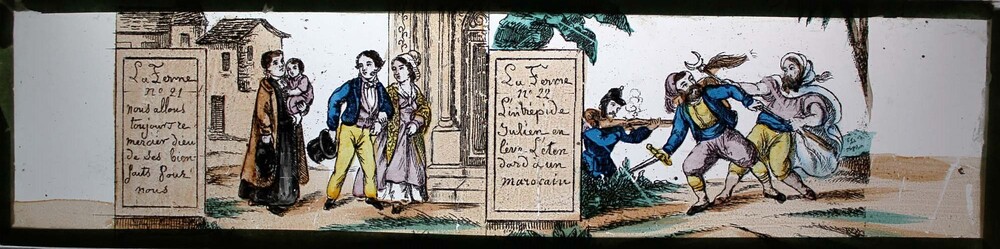 La Ferme
n° 21
nous allons
toujours re
mercier dieu
de ses bien
faits pour
nous
La Ferme
n° 22
L'intrepide
Julien en
leve L'éten
dard à un
marocain